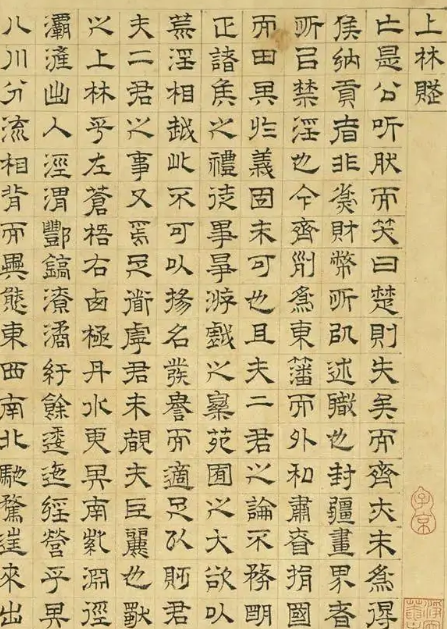 上林賦
亡是公听肰而笑曰楚則失矣而齊亦未爲得
侯納貢者非爲財幣所以述職也封疆畫界者
所㠯禁淫也今齊列爲東藩而外私肅眘捐國
而田其於義固未可也且夫二君之論不務明
正諸侯之禮徒事爭游戲之樂苑囿之大欲以
荒淫相越此不可以揚名發譽而適足以貶君
夫二君之事又焉足道虖君未覩夫巨麗也獨
之上林乎左蒼梧右西極丹水更其南紫淵徑
灞滻出入涇渭酆鎬潦潏紆餘逶迤經營乎其
八川分流相背而異態東西南北馳騖往來出
子京